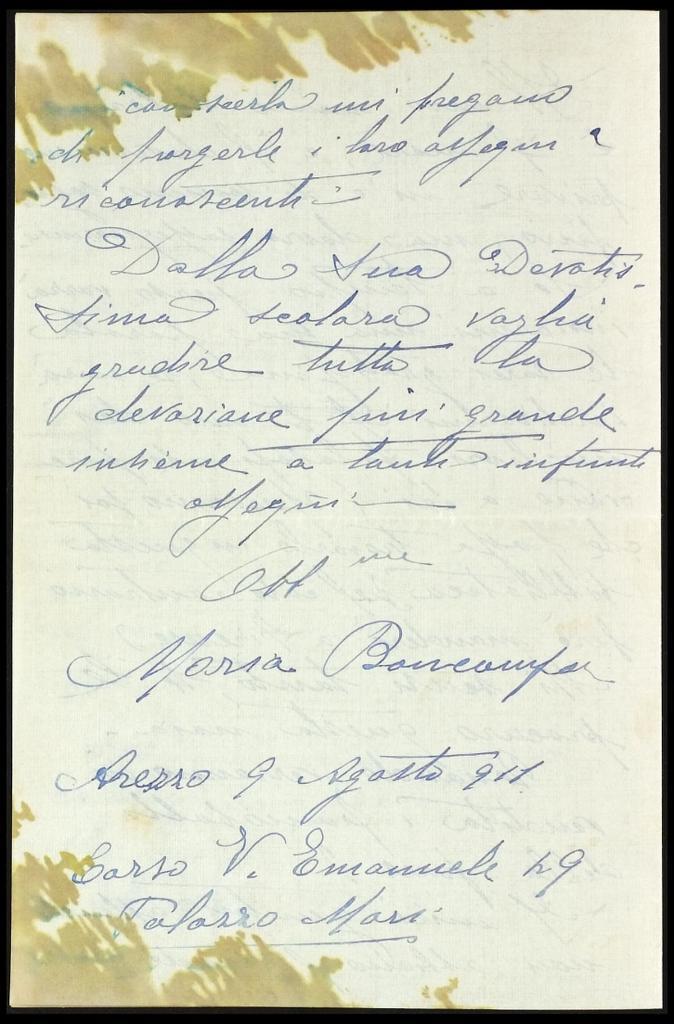 conoscerla mi pregano
di porgerle i loro ossequi
riconoscenti.
Dalla Sua Devotis-
sima scolara voglia
gradire tutta la
devozione più grande
insieme a tanti infiniti
ossequi.
Obb me
Maria Boncompa
Arezzo 9 Agosto 911
Corso V. Emanuele 29
Palazzo Mari